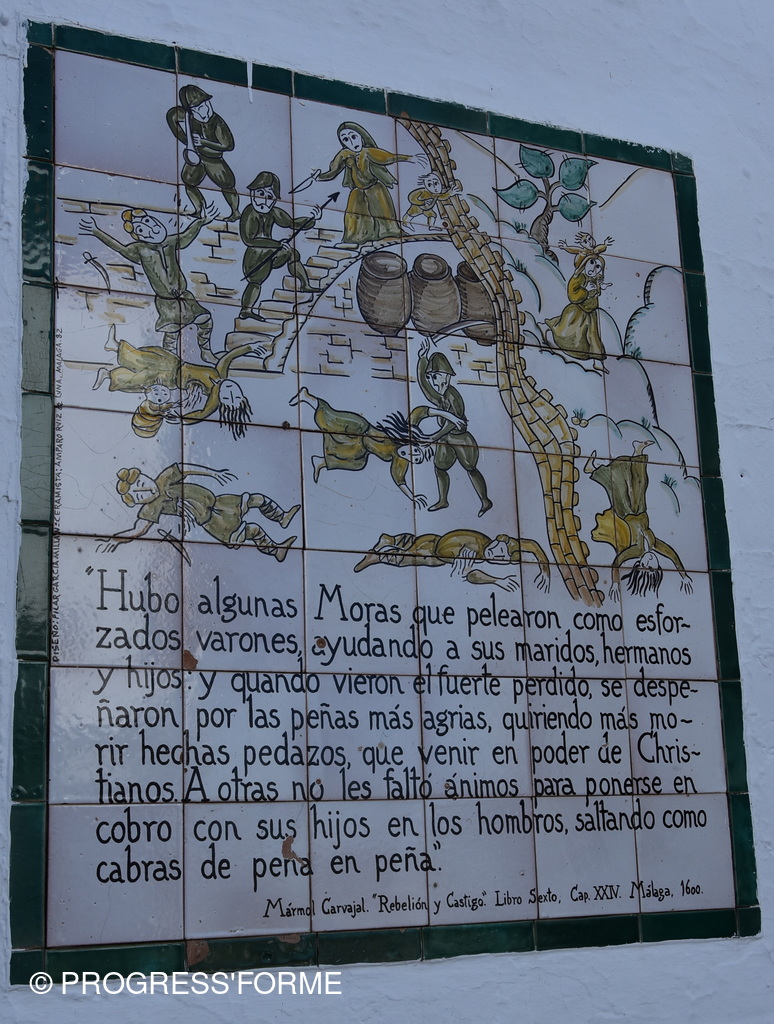 "Hubo algunas Moras que pelearon como esfor-
zados varones, ayudando a sus maridos, hermanos
y hijos: y quando vieron el fuerte perdido, se despe-
ñaron por las peñas más agrias, quiriendo más mo-
rir hechas pedazos, que venir en poder de Chris-
tianos. A otras no les faltó ánimos para ponerse en
cobro con sus hijos en los hombros, saltando como
cabras de peña en peña".
Mármol Carvajal. "Rebelión y Castigo". Libro Sexto, Cap. XXIV. Málaga, 1600.
DISEÑO: PILAR GARCIA MILLAN/CERAMISTA: AMPARO RUIZ DE LUNA. MALAGA.
© PROGRESS'FORME